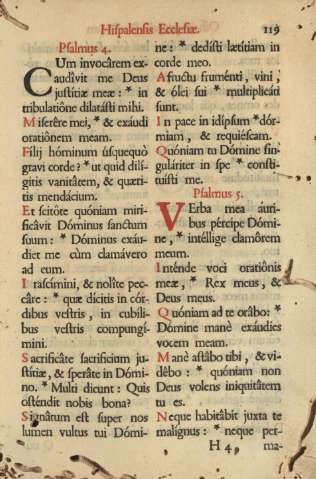 Hispalensis Ecclesiæ. 119
Psalmus 4.
CUm invocárem ex-
audívit me Deus
justítiæ meæ: * in
tribulatióne dilatásti mihi.
Miserére mei, * & exáudi
oratiónem meam.
Fílij hóminum úsquequò
gravi corde? * ut quid dilí-
gitis vanitátem, & quærí-
tis mendácium.
Et scitóte quóniam miri-
ficávit Dóminus sanctum
suum: * Dóminus exáu-
diet me cùm clamávero
ad eum.
Irascímini, & nolíte pec-
cáre: * quæ dícitis in cór-
dibus vestris, in cubíli-
bus vestris compungí-
mini.
Sacrificáte sacrifícium ju-
stítiæ, & speráte in Dómi-
no. * Multi dicunt: Quis
osténdit nobis bona?
Signátum est super nos
lumen vultus tui Dómi-
ne: * dedísti lætítiam in
corde meo.
A fructu fruménti, vini,
& ólei sui * multiplicáti
sunt.
In pace in idípsum * dór-
miam, & requiéscam.
Quóniam tu Dómine sin-
guláriter in spe * constí-
tuísti me.
Psalmus 5.
VErba mea áuri-
bus pércipe Dómi-
ne, * intéllige clamórem
meum.
Inténde voci oratiónis
meæ, * Rex meus, &
Deus meus.
Quóniam ad te orábo: *
Dómine manè exáudies
vocem meam.
Manè astábo tibi, & vi-
débo: * quóniam non
Deus volens iniquitátem
tu es.
Neque habitábit juxta te
malígnus: * neque per-
H 4, ma-